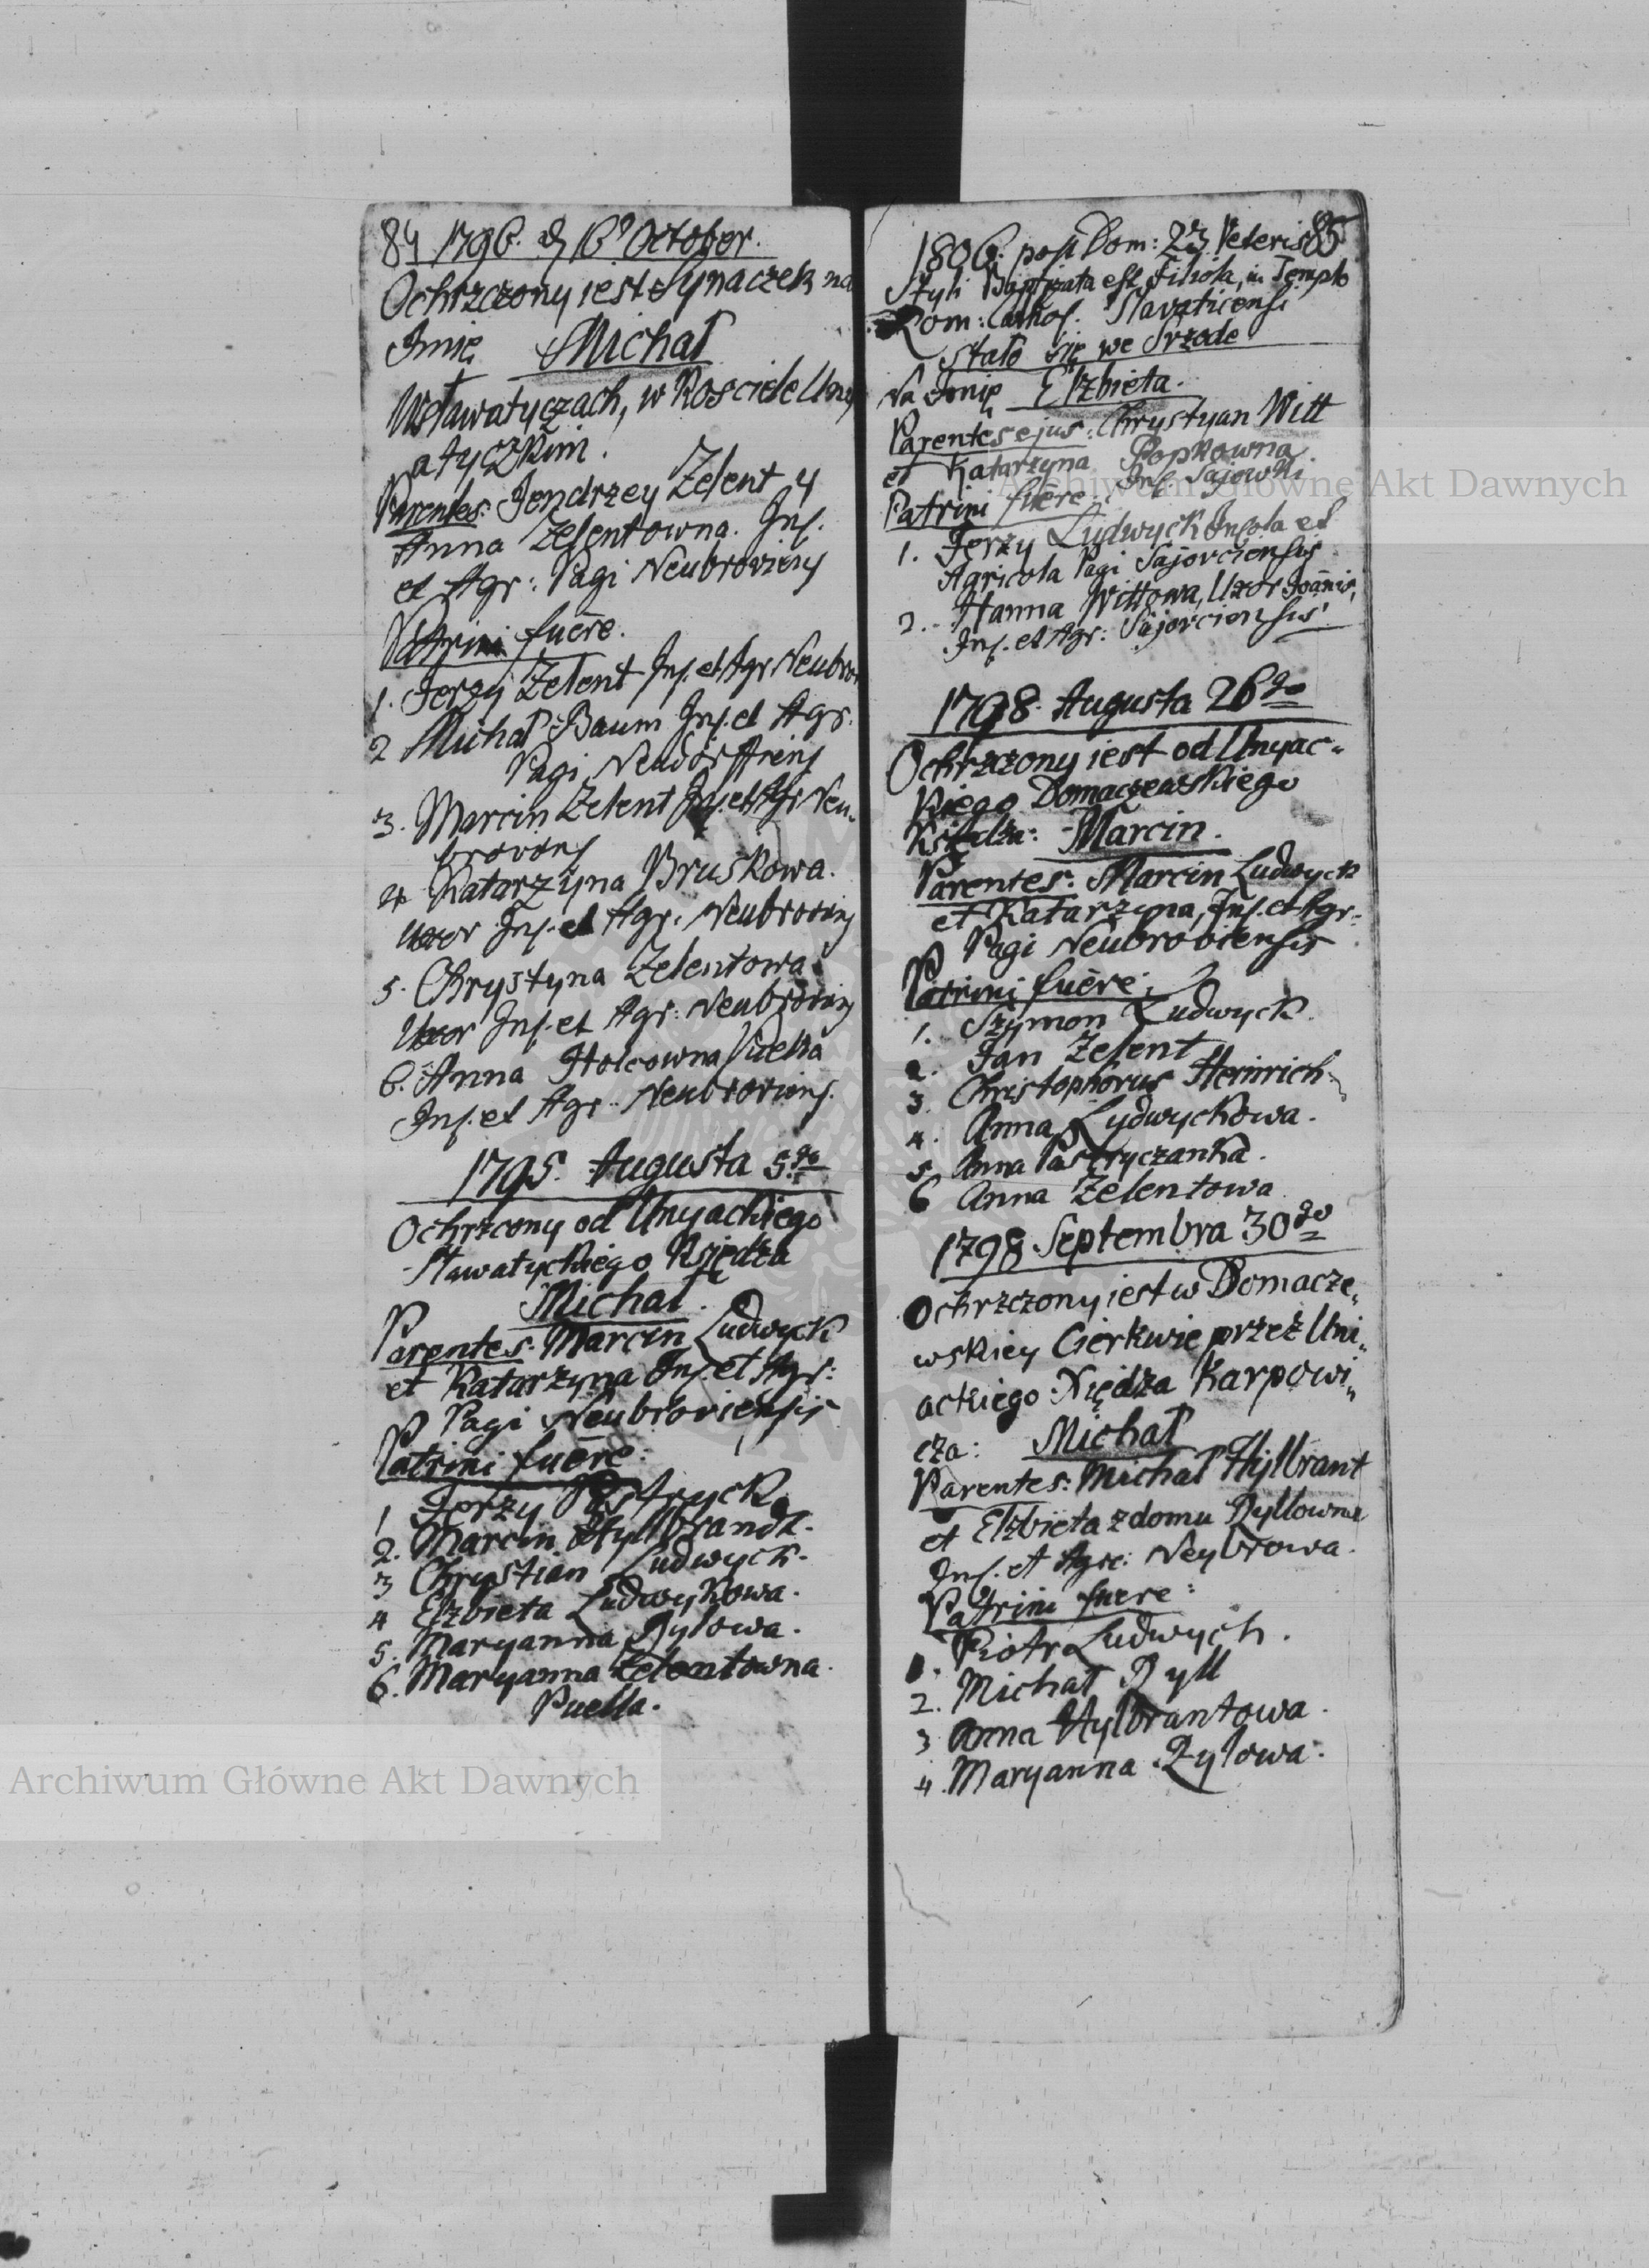 84 1796. d. 16º October.
Ochrzczony iest Synaczek na
Imię Michał
W Sławatyczach, w Kosciele Uny
atyczkim.
Parentes: Jendrzey Zelent y
Anna Zelentowna. Inf.
et Agr: Pagi Neubroviens
Patrini fuēre.
1. Jerzy Zelent Inf. et Agr Neubro
2 Michał Baum Inf. et Agr.
Pagi Neudorffiens
3. Marcin Zelent Inf. et Agr Neu-
broviens
4 Katarzyna Bruskowa.
Uxor Inf. et Agr. Neubroviens
5. Chrystyna Zelentowa
Uxor Inf. et Agr: Neubroviens
6. Anna Holcowna Puella
Inf. et Agr. Neubroviens.
1795. Augusta 5go
Ochrzcony od Unyackiego
Sławatyckiego Księdza
Michał.
Parentes: Marcin Ludwyck
et Katarzyna Inf. et Agr:
Pagi Neubroviensis
Patrini fuēre:
1 Jerzy Pastryck
2. Marcin Hyllbrandt.
3 Chrystian Ludwyck.
4 Elzbieta Ludwykowa.
5. Maryanna Rylowa.
6. Maryanna Zelentowna.
Puella.
85
1806. post Dom: 23 Veteris
Styli Baptizata est Filiola, in Templo
Rom: Cathol. Slavaticensi
Stało się we Srzode
Na Imię Elzbieta.
Parentes ejus: Chrystyan Witt
et Katarzyna Popkowna.
Inf. Sajowki
Patrini fuēre:
1. Jerzy Ludwyck Incola et
Agricola Pagi Sajorciensis
2. Hanna Wittowa, Uxor Joānis,
Inf. et Agr: Sajorciensis.
1798. Augusta 26go
Ochrzczony iest od Unyac-
kiego Domaczewskiego
Księdza: Marcin.
Parentes: Marcin Ludwyck
et Katarzyna, Inf. et Agr:
Pagi Neubroviensis
Patrini fuēre:
1. Szymon Ludwyck.
2. Jan Zelent
3. Christophorus Heinrich
4. Anna Ludwyckowa.
5. Anna Pastryczanka.
6 Anna Zelentowa
1798. Septembra 30go
Ochrzczony iest w Domacze,,
wskiey Cierkwie przez Uni,,
ackiego Xiędza Karpowi,,
cza: Michał
Parentes: Michał Hylbrant
et Elzbieta z domu Ryllowna
Inf. et Agr: Neybrowa.
Patrini fuere:
1. Piotr Ludwych.
2. Michał Ryll
3 Anna Hylbrantowa.
4. Maryanna Rylowa.
Archiwum Główne Akt Dawnych
Archiwum Główne Akt Dawnych